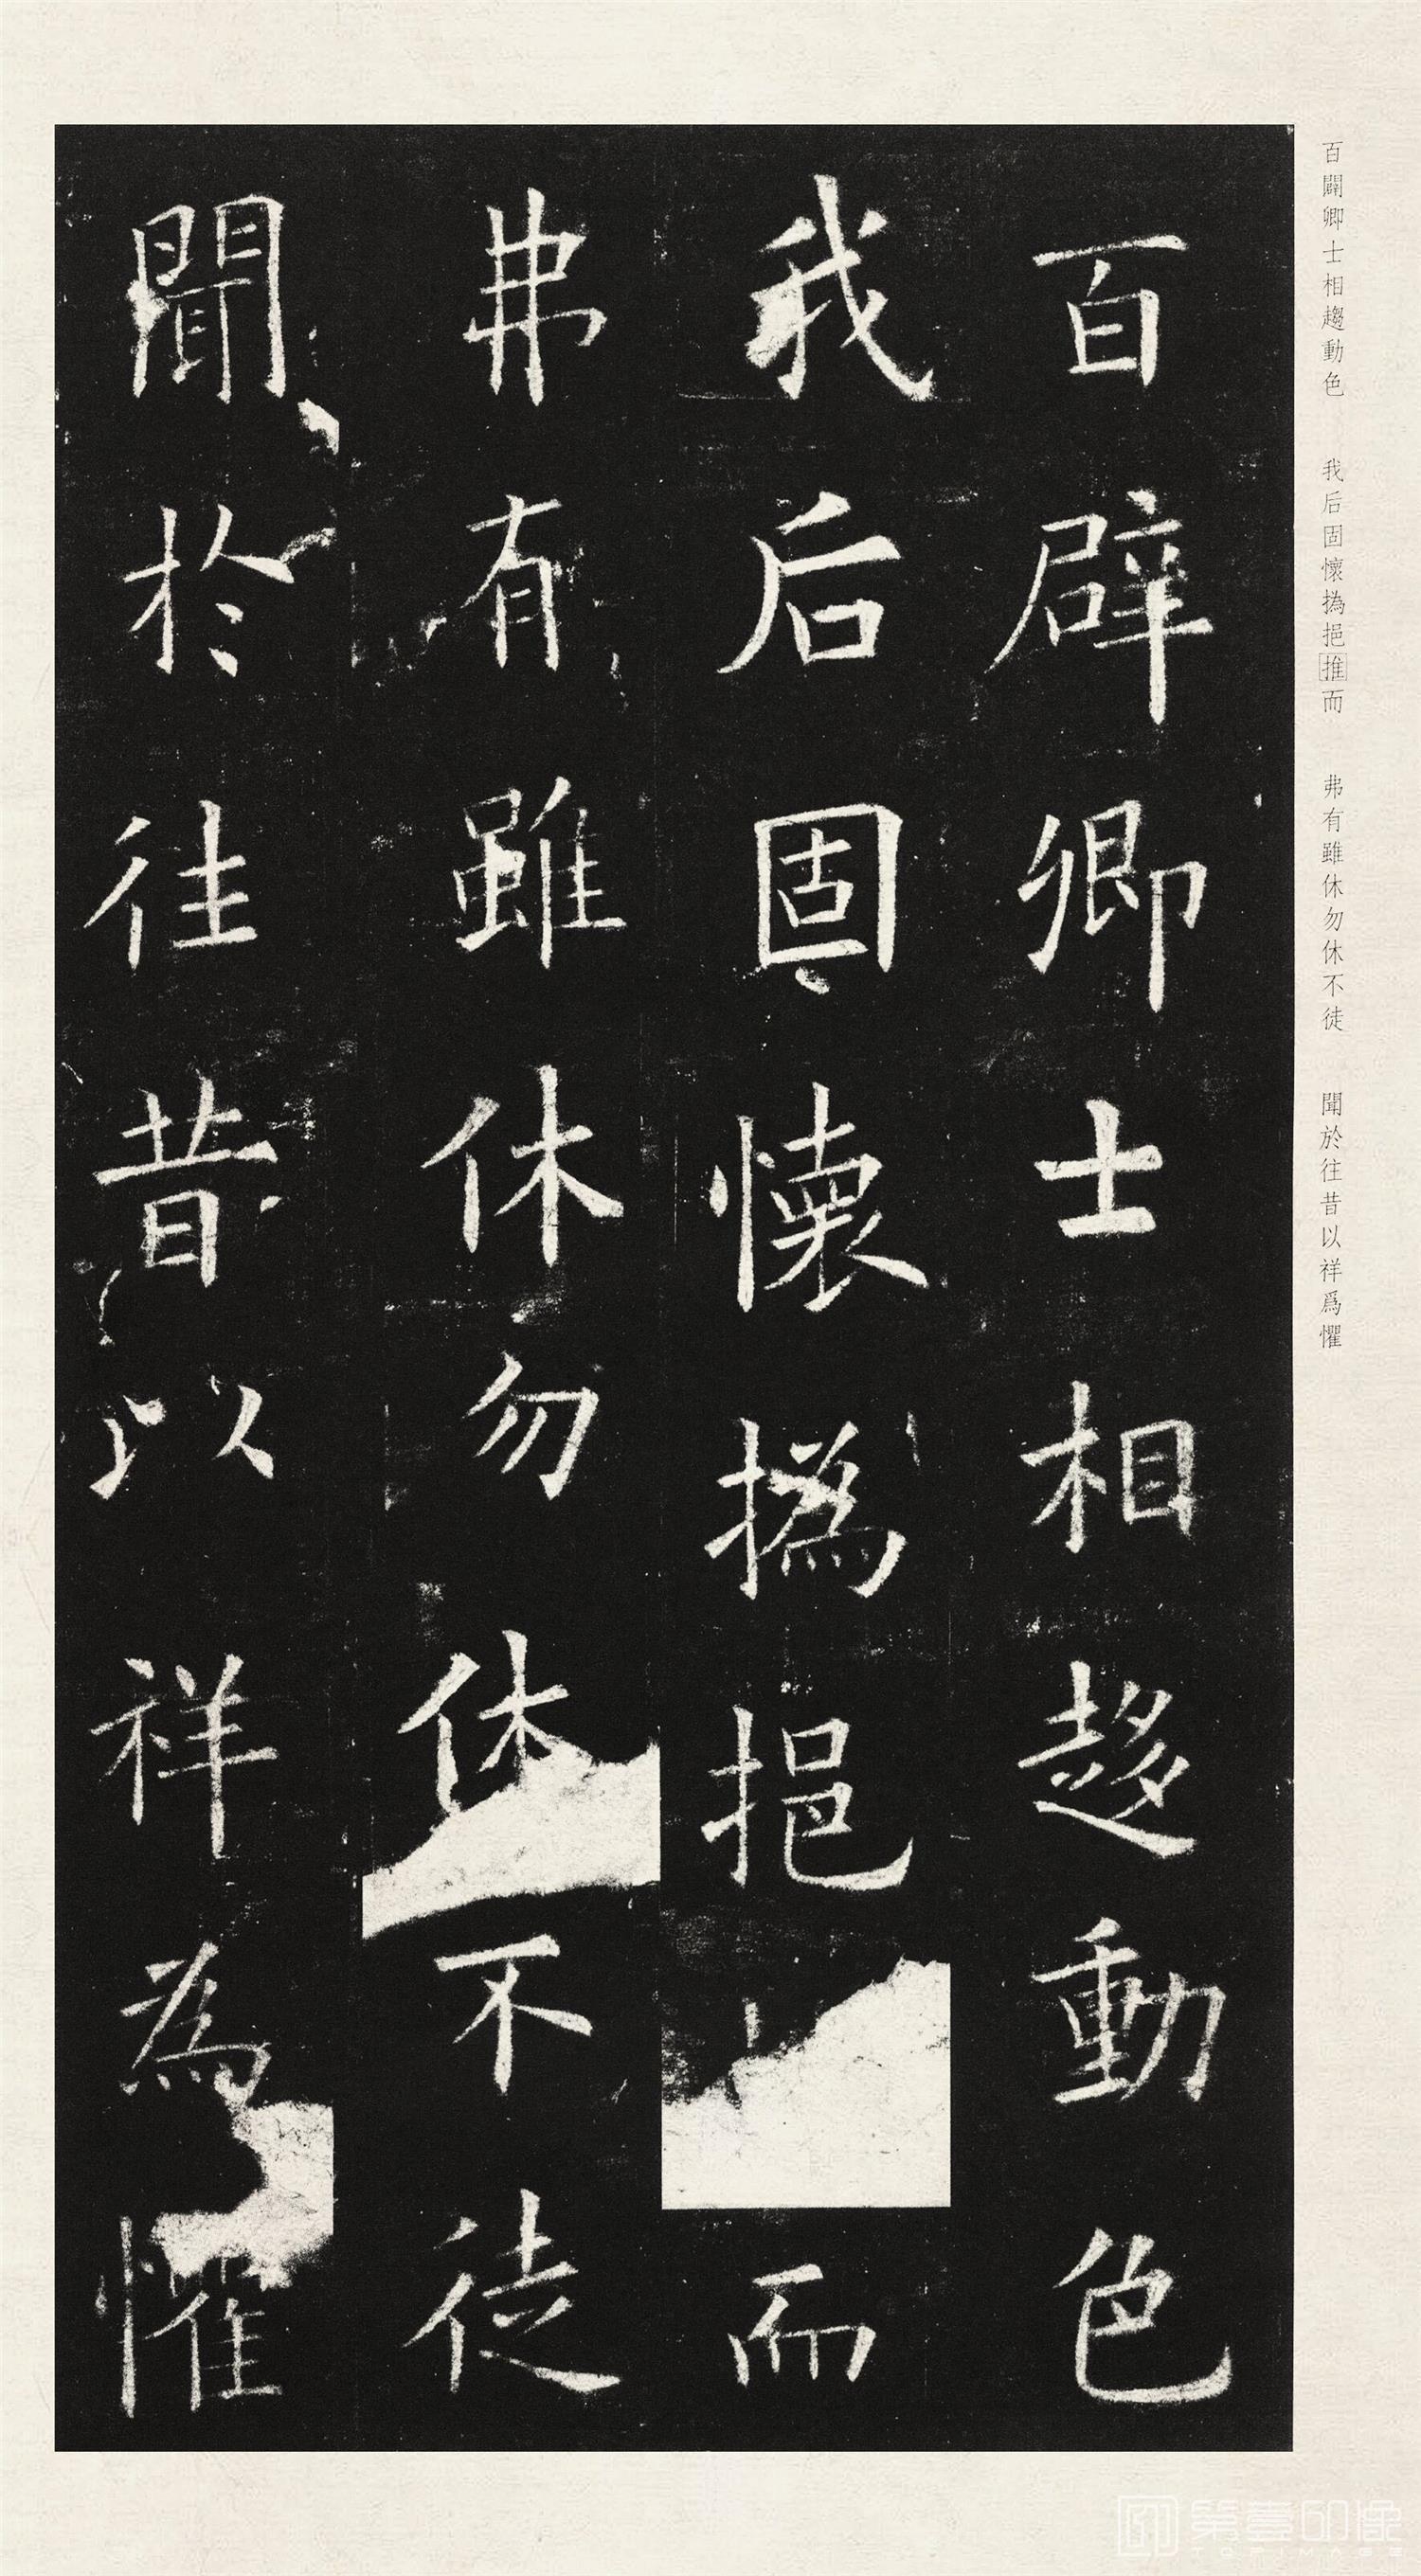 百辟卿士相趍動色
我后固懷撝挹而
弗有雖休勿休不徒
聞於往昔以祥為懼
百闢卿士相趨動色 我后固懷撝挹推而 弗有雖休勿休不徒 聞於往昔以祥爲懼
第壹印像
TOPIMAGE